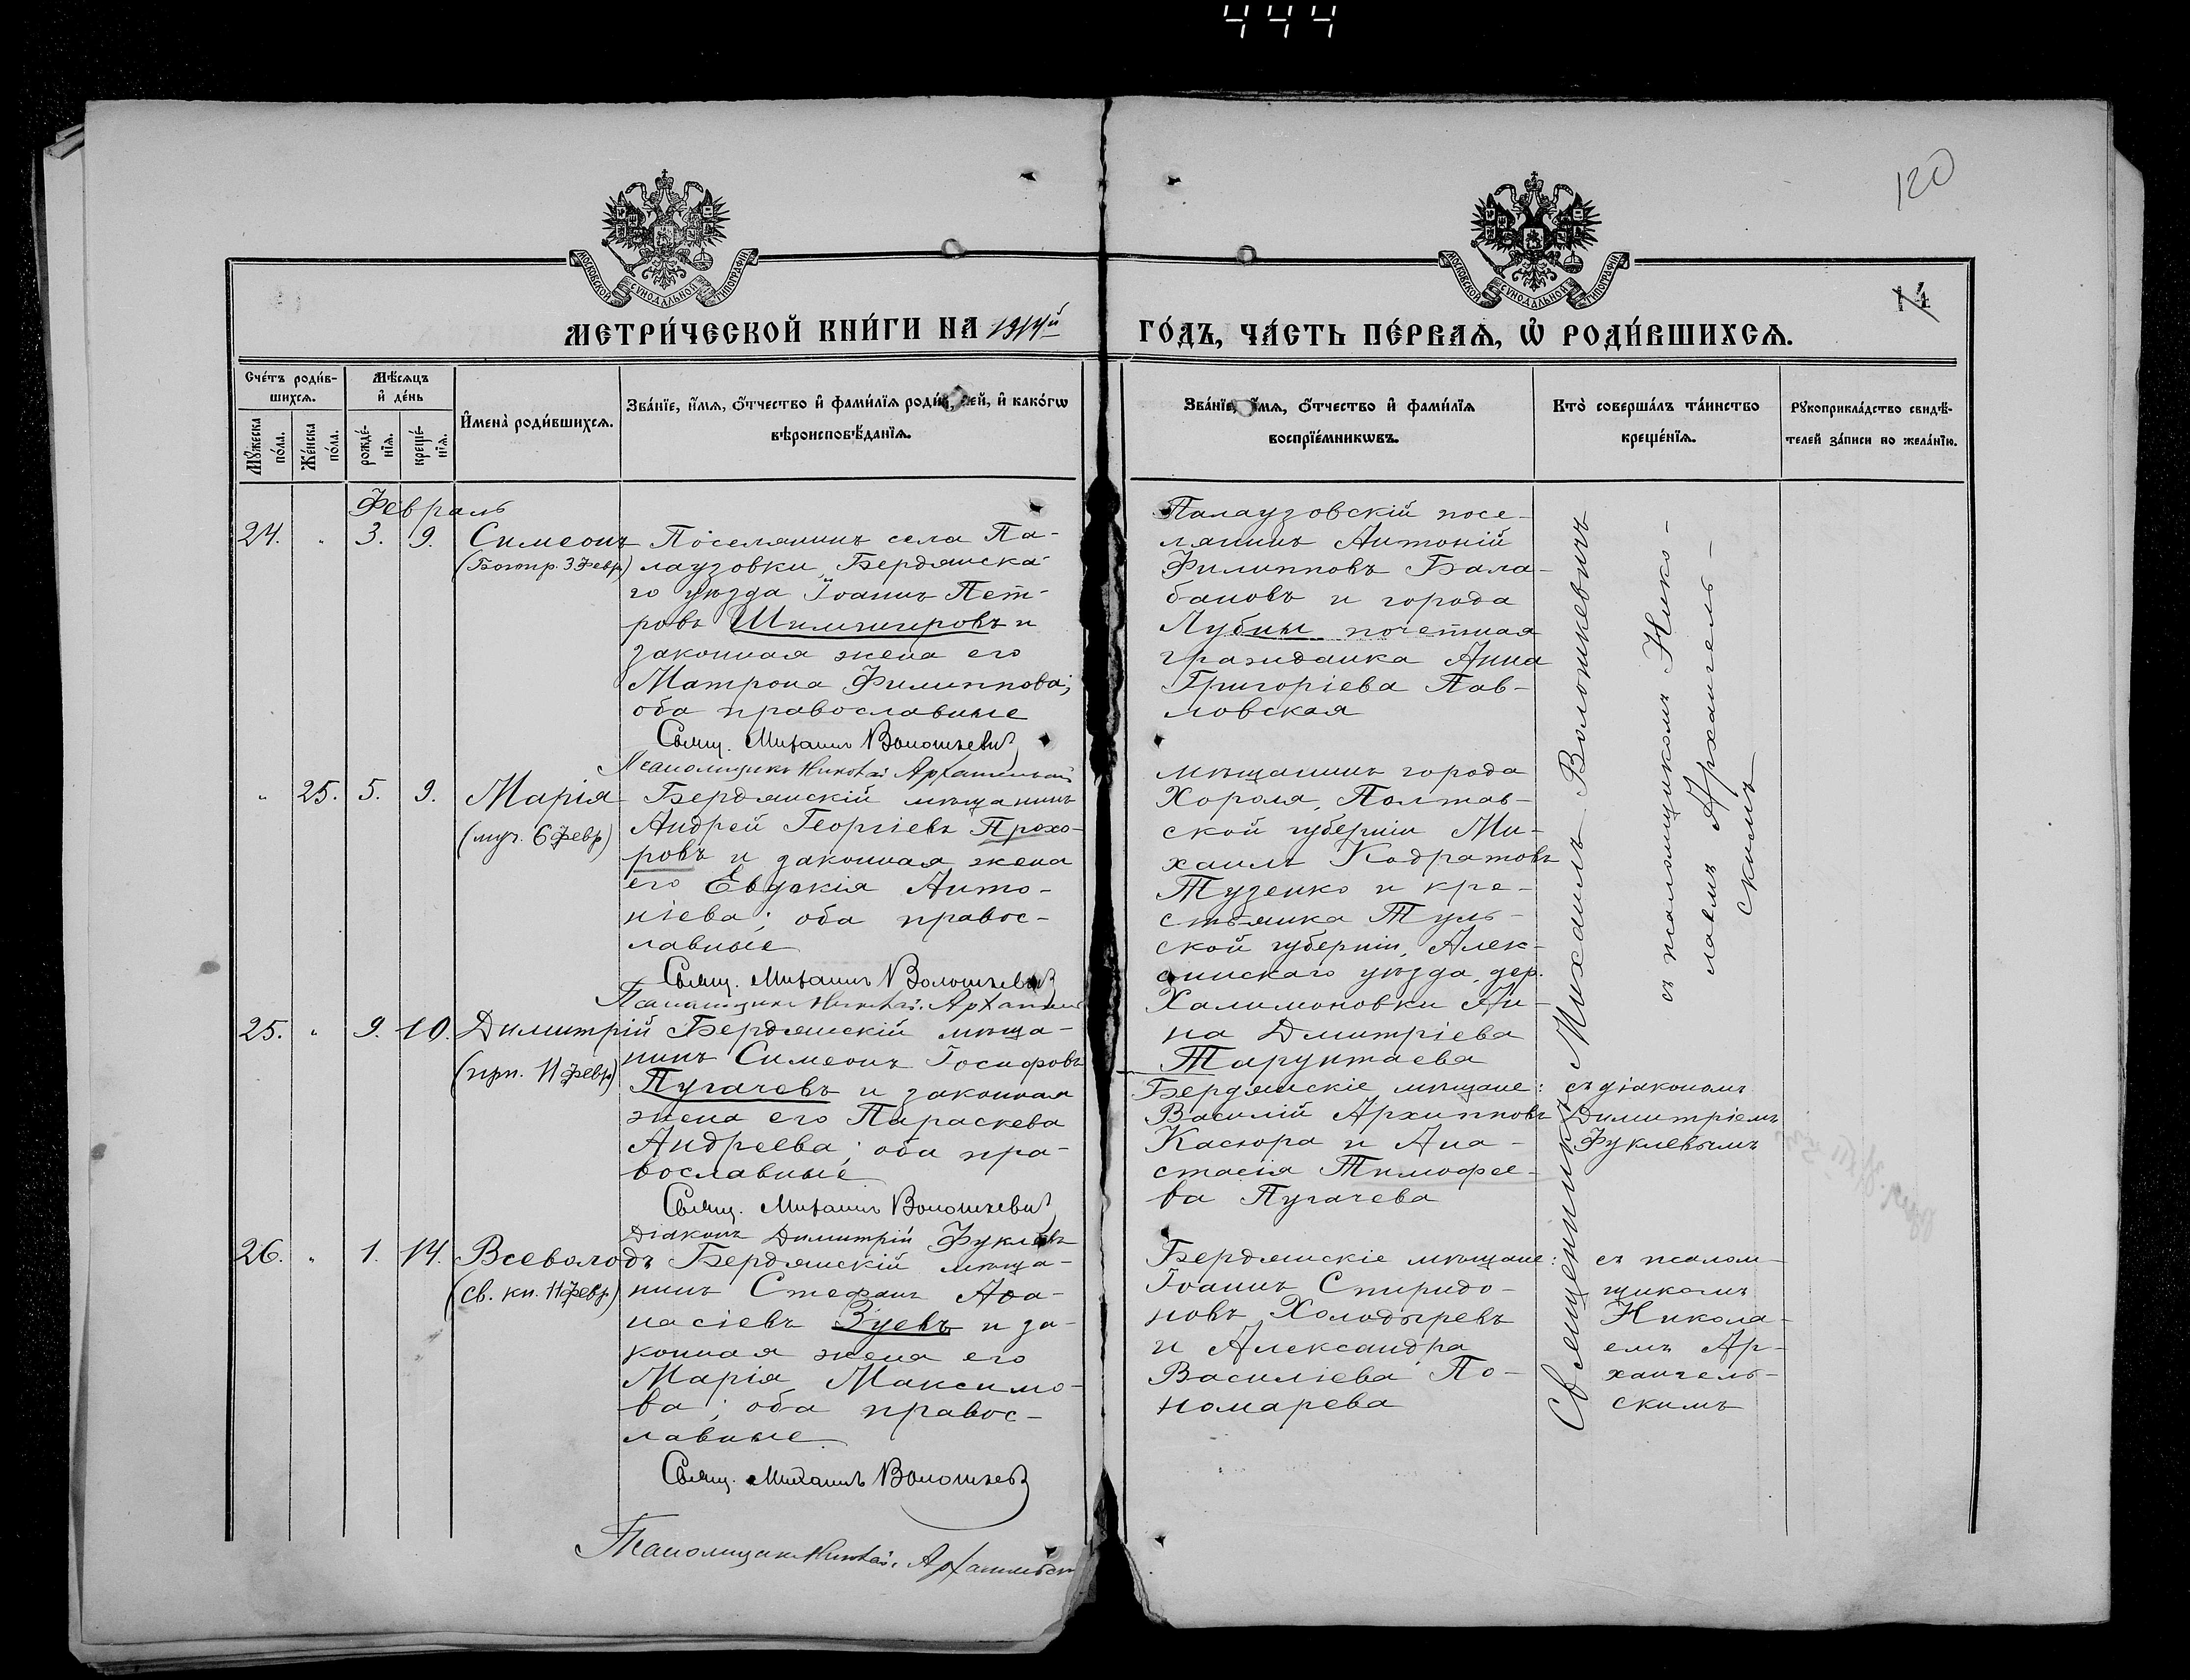 444
120
14
МОСКОВСКОЙ СѴНОДАЛЬНОЙ ТИПОГРАФІИ
МОСКОВСКОЙ СѴНОДАЛЬНОЙ ТИПОГРАФІИ
МЕТРИ́ЧЕСКОЙ КНИ́ГИ НА 1914й ГО́ДЪ, ЧА́СТЬ ПЕ́РВАѦ, Ѡ҆ РОДИ́ВШИХСѦ.
Сче́тъ роди́в-
шихсѧ.
Мꙋ́жеска по́ла.
Же́нска по́ла.
Мѣ́сѧцъ
и҆ де́нь
рожде́-
нїѧ.
креще́-
нїѧ.
И҆мена̀ роди́вшихсѧ.
Зва́нїе, и҆́мѧ, ѻ҆́тчество и҆ фами́лїѧ роди́телей, и҆ како́гѡ
вѣроисповѣ́данїѧ.
Зва́нїе, и҆́мѧ, ѻ҆́тчество и҆ фами́лїѧ
воспрїе́мникѡвъ.
Кто̀ соверша́лъ та́инство
креще́нїѧ.
Рꙋкоприкла́дство свидѣ́-
телей за́писи по жела́нїю.
Февраль
24. " 3. 9. Симеонъ
(Богопр. 3 Февр)
Поселянинъ села Па-
лаузовки, Бердянска-
го уѣзда Іоаннъ Пет-
ровъ Шилингировъ и
законная жена его
Матрона Филиппова;
оба православные
Свящ. Михаилъ Волошкевичъ
Псаломщикъ Николай Архангельскій
Палаузовскій посе-
лянинъ Антоній
Филипповъ Бала-
бановъ и города
Лубны почетная
гражданка Анна
Григоріева Пав-
ловская
" 25. 5. 9. Марія
(муч. 6 Февр)
Бердянскій мѣщанинъ
Андрей Георгіевъ Прохо-
ровъ и законная жена
его Евдокія Анто-
ніева; оба правос-
лавные
Свящ. Михаилъ Волошкевичъ
Псаломщикъ Николай Архангел
мѣщанинъ города
Хороля, Полтав-
ской губерніи Ми-
хаилъ Кодратовъ
Тузенко и кре-
стьянка Туль-
ской губерніи, Алек-
синскаго уѣзда, дер.
Халимоновки Ан-
на Дмитріева
Тарунтаева
25. " 9. 10. Димитрій
(прп. 11 Февр)
Бердянскій мѣща-
нинъ Симеонъ Іосифовъ
Пугачевъ и законная
жена его Параскева
Андреева; оба пра-
вославные
Свящ. Михаилъ Волошкевичъ
Діаконъ Димитрій Фуклевъ
Бердянскіе мѣщане:
Василій Архипповъ
Касюра и Ана-
стасія Тимофее-
ва Пугачева
съ діакономъ
Димитріемъ
Фуклевымъ
26. " 1. 14. Всеволодъ
(св. кн. 11 Февр)
Бердянскій мѣща-
нинъ Стефанъ Аѳа-
насіевъ Зуевъ и за-
конная жена его
Марія Максимо-
ва; оба правос-
лавные
Свящ. Михаилъ Волошкев
Псаломщикъ Николай Архангельск
Бердянскіе мѣщане:
Іоаннъ Спиридо-
новъ Холодыревъ
и Александра
Василіева По-
номарева
съ псалом-
щикомъ
Никола-
емъ Ар-
хангель-
скимъ
Священникъ Михаилъ Волошкевичъ
съ псаломщикомъ Нико-
лаемъ Архангель-
скимъ